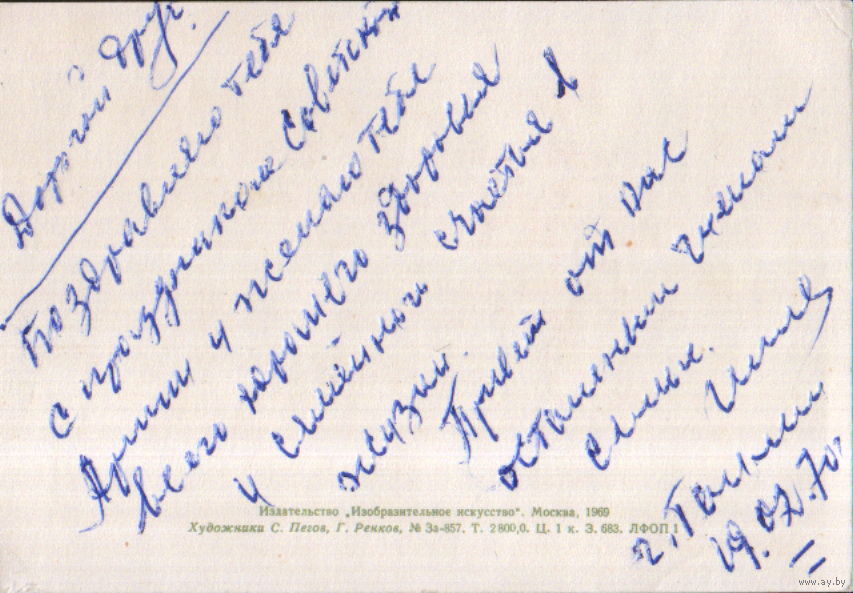 Дорогой друг.
Поздравляю тебя
с праздником Советской
Армии и желаю тебе
всего хорошего здоровья
и семейного счастья в
жизни.
Привет от нас
остальным членам
семьи.
г.
19.02.70г
Издательство „Изобразительное искусство“. Москва, 1969
Художники С. Пегов, Г. Ренков, № За-857. Т. 2800,0. Ц. 1 к. З. 683. ЛФОП 1
www.ay.by